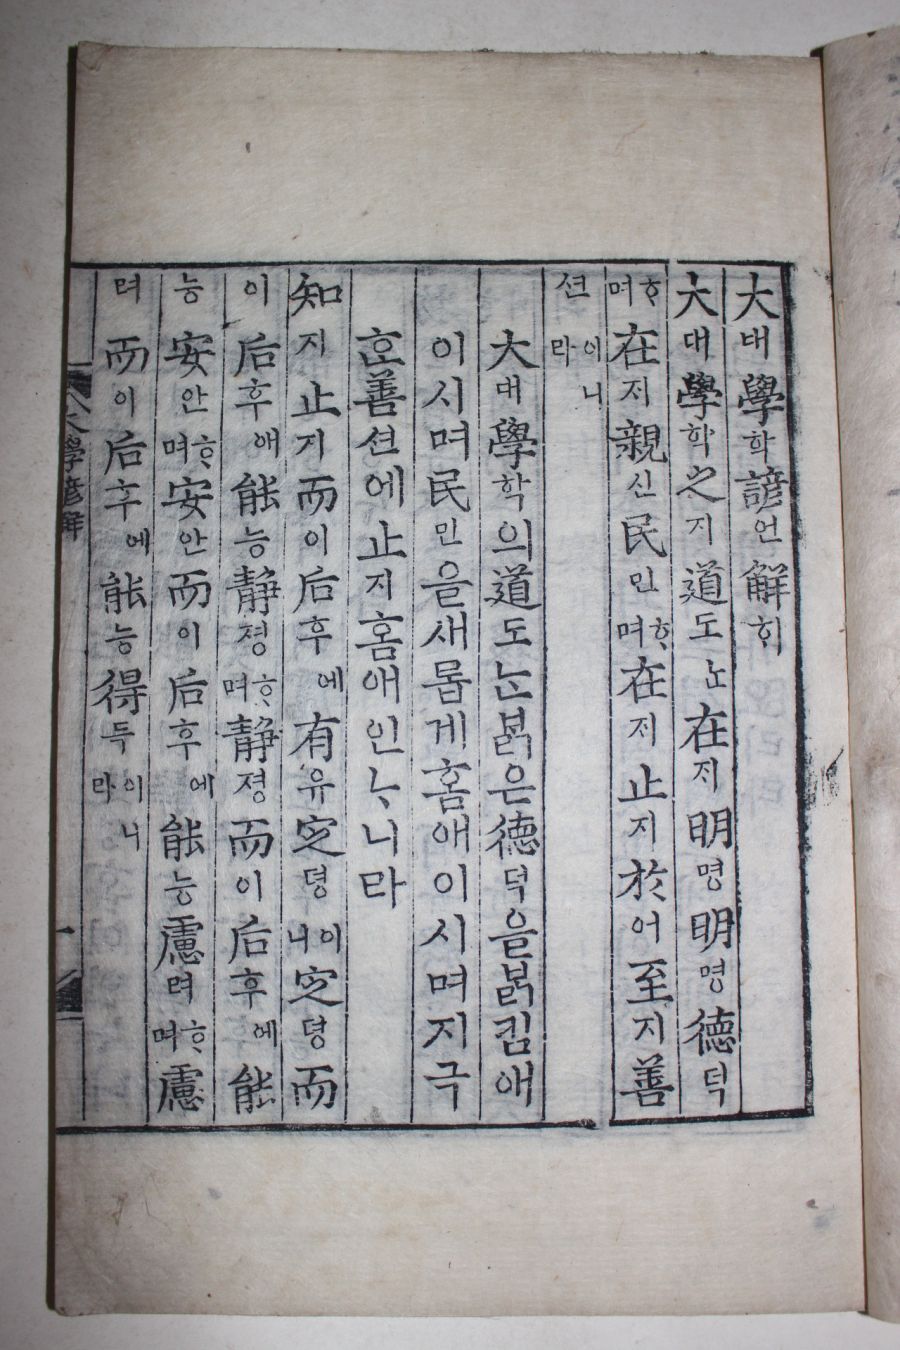 大대學학諺언解ᄒᆡ
大대學학之지道도ᄂᆞᆫ在ᄌᆡ明명明명德덕
ᄒᆞ며在ᄌᆡ親신民민ᄒᆞ며在ᄌᆡ止지於어至지善
션이니라
大대學학의道도ᄂᆞᆫᄇᆞᆰ은德덕을ᄇᆞᆰ킴애
이시며民민을새롭게홈애이시며지극
ᄒᆞᆫ善션에止지홈애인ᄂᆞ니라
知지止지而이后후에有유㝎뎡이니㝎뎡而
이后후에能능静졍ᄒᆞ며静졍而이后후에能
능安안ᄒᆞ며安안而이后후에能능慮려ᄒᆞ며慮
려而이后후에能능得득이니라
大學諺解 一